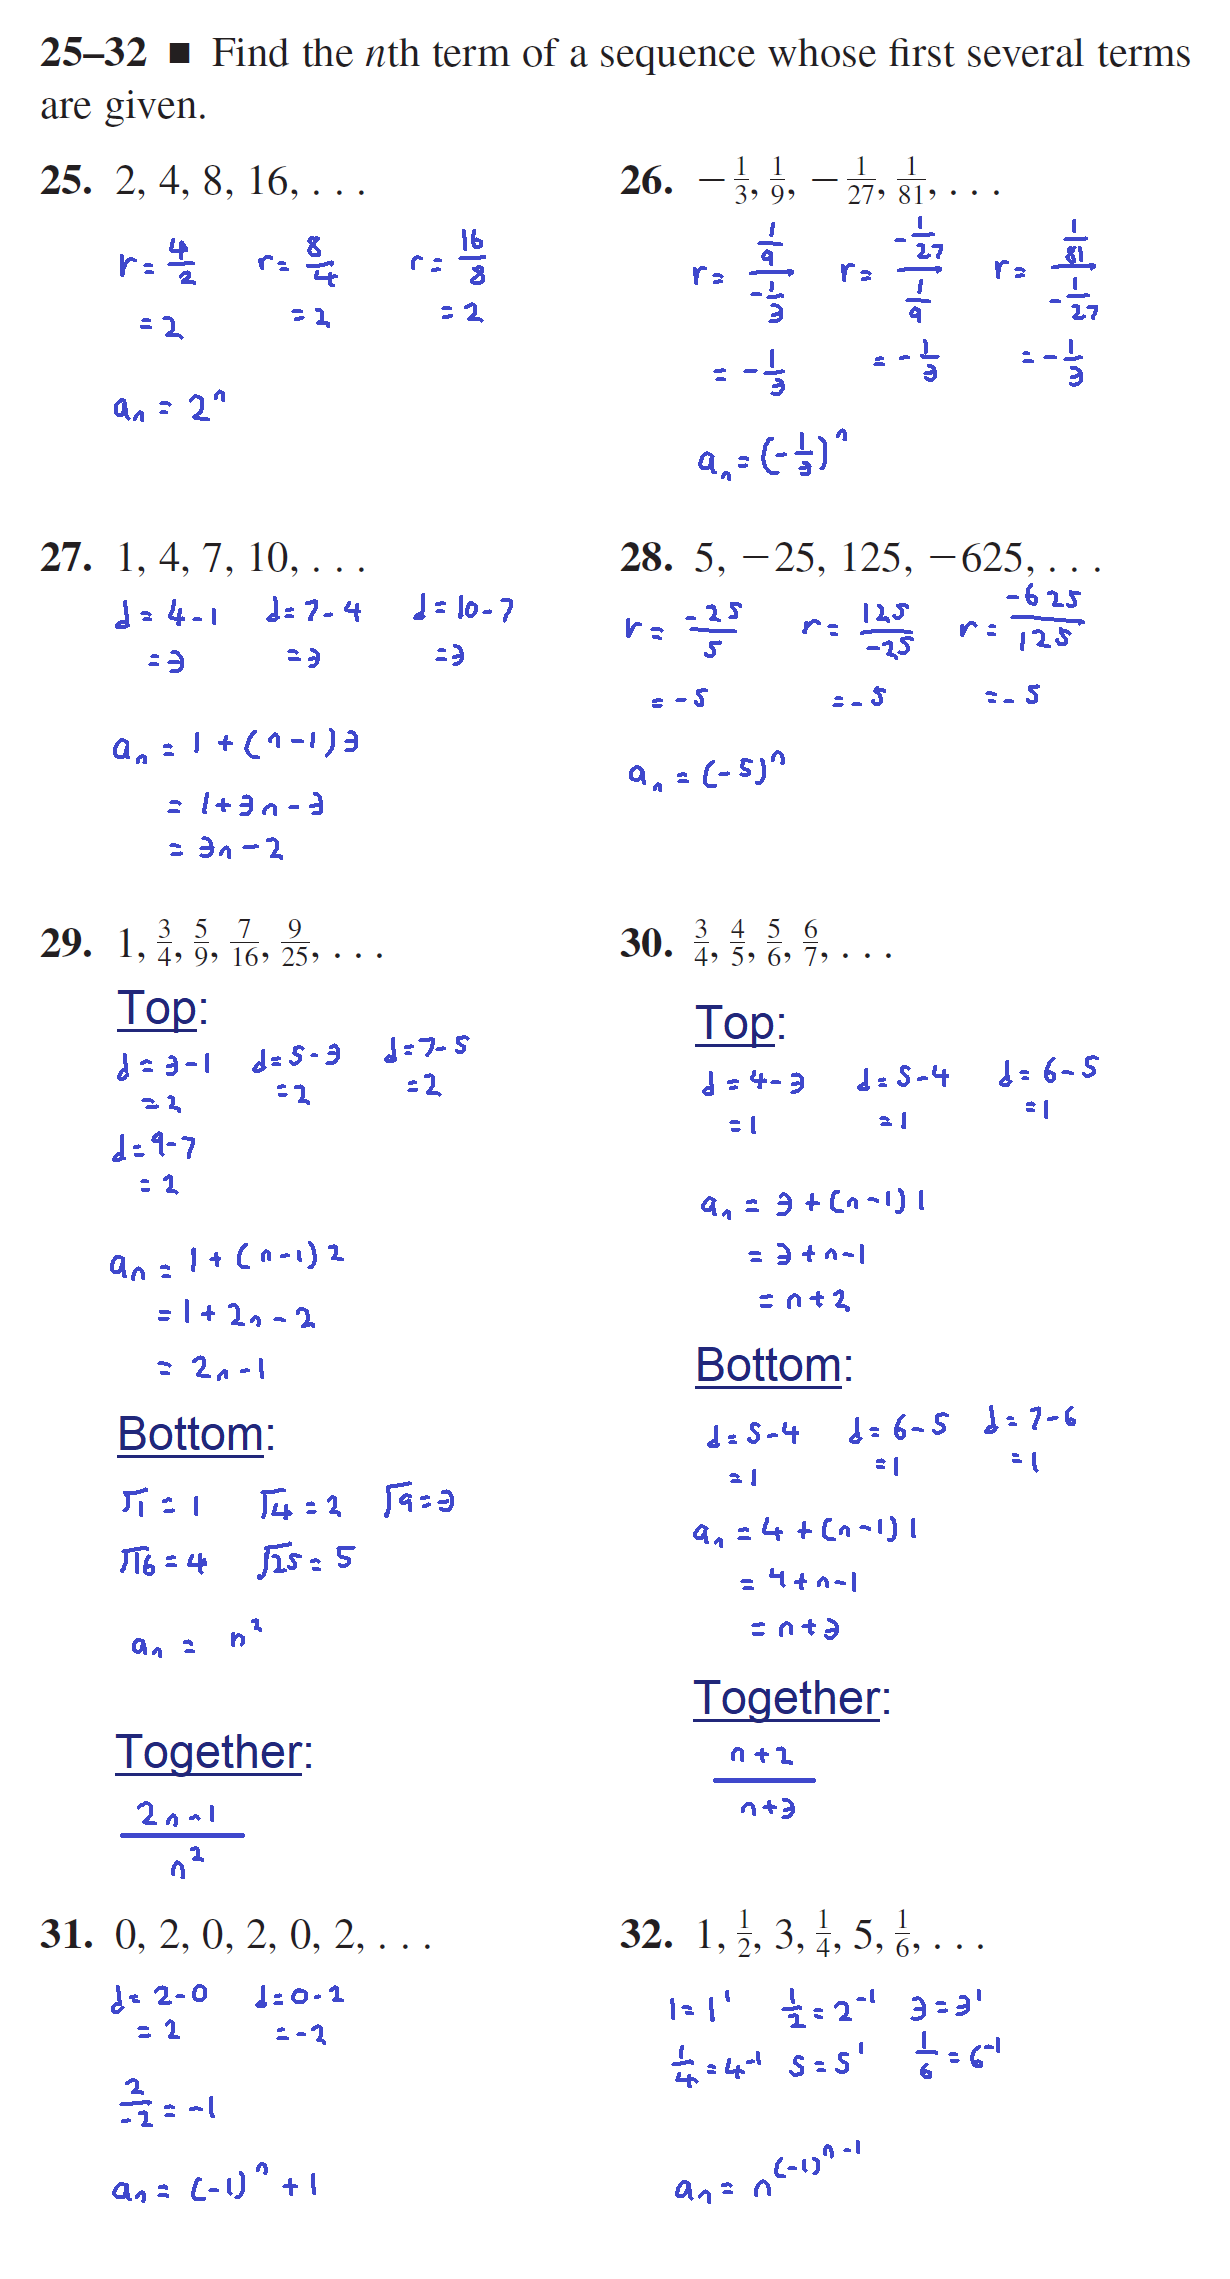 25–32 ■ Find the nth term of a sequence whose first several terms
are given.
25. 2, 4, 8, 16, . . .
r = 4/2 r = 8/4 r = 16/8
= 2 = 2 = 2
aₙ = 2ⁿ
26. −1/3, 1/9, −1/27, 1/81, . . .
r = (1/9)/(-1/3) r = (-1/27)/(1/9) r = (1/81)/(-1/27)
= -1/3 = -1/3 = -1/3
aₙ = (-1/3)ⁿ
27. 1, 4, 7, 10, . . .
d = 4-1 d = 7-4 d = 10-7
= 3 = 3 = 3
aₙ = 1 + (n-1)3
= 1+3n-3
= 3n-2
28. 5, −25, 125, −625, . . .
r = -25/5 r = 125/-25 r = -625/125
= -5 = -5 = -5
aₙ = (-5)ⁿ
29. 1, 3/4, 5/9, 7/16, 9/25, . . .
Top:
d = 3-1 d = 5-3 d = 7-5
= 2 = 2 = 2
d = 9-7
= 2
aₙ = 1 + (n-1)2
= 1 + 2n - 2
= 2n-1
Bottom:
√1 = 1 √4 = 2 √9 = 3
√16 = 4 √25 = 5
aₙ = n²
Together:
(2n-1)/n²
30. 3/4, 4/5, 5/6, 6/7, . . .
Top:
d = 4-3 d = 5-4 d = 6-5
= 1 = 1 = 1
aₙ = 3 + (n-1)1
= 3+n-1
= n+2
Bottom:
d = 5-4 d = 6-5 d = 7-6
= 1 = 1 = 1
aₙ = 4 + (n-1)1
= 4+n-1
= n+3
Together:
(n+2)/(n+3)
31. 0, 2, 0, 2, 0, 2, . . .
d = 2-0 d = 0-2
= 2 = -2
2/-2 = -1
aₙ = (-1)ⁿ + 1
32. 1, 1/2, 3, 1/4, 5, 1/6, . . .
1 = 1¹ 1/2 = 2⁻¹ 3 = 3¹
1/4 = 4⁻¹ 5 = 5¹ 1/6 = 6⁻¹
aₙ = n^((-1)^(n-1))